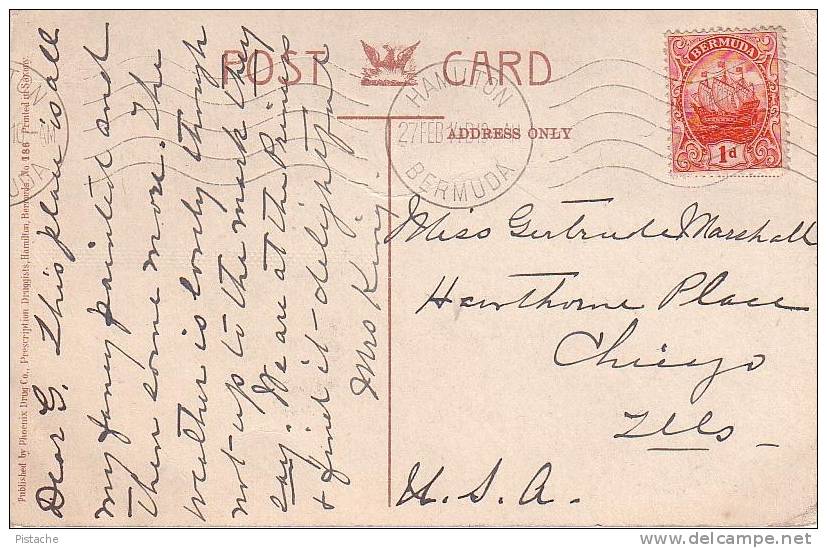 POST CARD
ADDRESS ONLY
HAMILTON
BERMUDA
27 FEB
BERMUDA
1d
Published by Phoenix Drug Co., Prescription Druggists, Hamilton, Bermuda, No. 186 Printed in Saxony
Dear G. This place is all
my fancy painted and
then some more. The
weather is lovely though
not up to the mark they
say. We are at the Princess
& find it delightful
Mrs King.
Miss Gertrude Marshall
Hawthorne Place
Chicago
Ills
U.S.A.
Pistache
www.delcampe.net